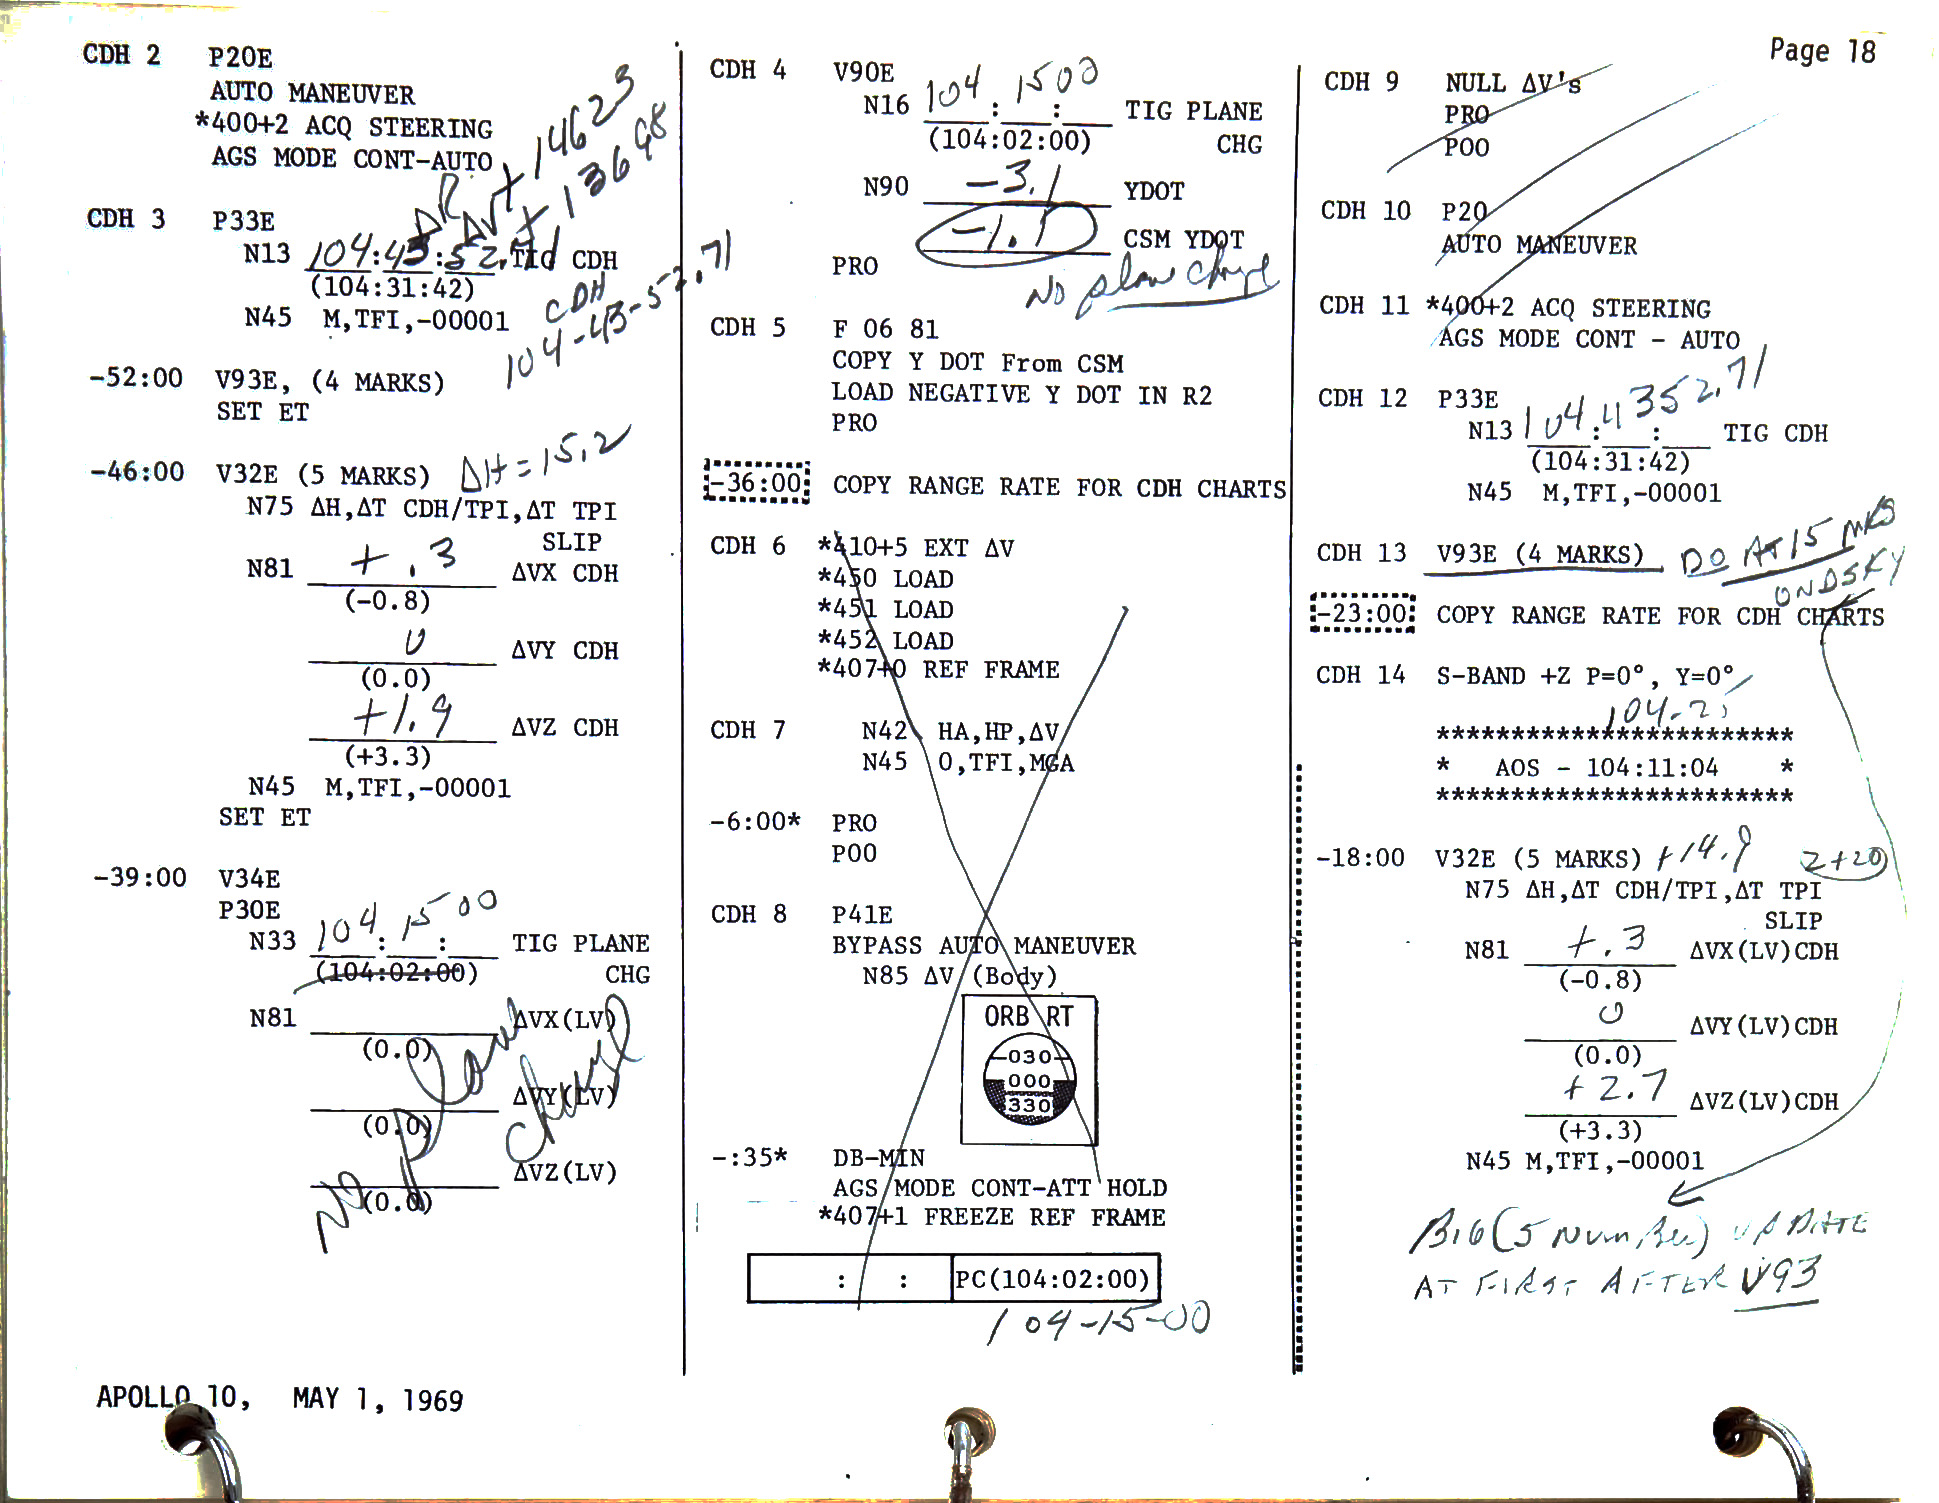 Page 18
CDH 2 P20E
AUTO MANEUVER
*400+2 ACQ STEERING
AGS MODE CONT-AUTO
ΔR + 14623
ΔV + 13698
CDH 3 P33E
N13 104:43:52.71 TIG CDH
(104:31:42)
N45 M,TFI,-00001
CDH
104-43-52.71
-52:00 V93E, (4 MARKS)
SET ET
-46:00 V32E (5 MARKS) ΔH=15.2
N75 ΔH,ΔT CDH/TPI,ΔT TPI
SLIP
N81 +.3 ΔVX CDH
(-0.8)
0 ΔVY CDH
(0.0)
+1.9 ΔVZ CDH
(+3.3)
N45 M,TFI,-00001
SET ET
-39:00 V34E
P30E
N33 104:15:00 TIG PLANE
(104:02:00) CHG
N81 ΔVX(LV)
(0.0)
ΔVY(LV)
(0.0)
ΔVZ(LV)
(0.0)
No plane change
APOLLO 10, MAY 1, 1969
CDH 4 V90E
N16 104:15:00 TIG PLANE
(104:02:00) CHG
N90 -3.1 YDOT
-1.1 CSM YDOT
PRO
No plane change
CDH 5 F 06 81
COPY Y DOT From CSM
LOAD NEGATIVE Y DOT IN R2
PRO
-36:00 COPY RANGE RATE FOR CDH CHARTS
CDH 6 *410+5 EXT ΔV
*450 LOAD
*451 LOAD
*452 LOAD
*407+0 REF FRAME
CDH 7 N42 HA,HP,ΔV
N45 0,TFI,MGA
-6:00* PRO
P00
CDH 8 P41E
BYPASS AUTO MANEUVER
N85 ΔV (Body)
ORB RT
030
000
330
-:35* DB-MIN
AGS MODE CONT-ATT HOLD
*407+1 FREEZE REF FRAME
: : PC(104:02:00)
104-15-00
CDH 9 NULL ΔV's
PRO
P00
CDH 10 P20
AUTO MANEUVER
CDH 11 *400+2 ACQ STEERING
AGS MODE CONT - AUTO
CDH 12 P33E
N13 104:43:52.71 TIG CDH
(104:31:42)
N45 M,TFI,-00001
CDH 13 V93E (4 MARKS) DO AT 15 MKS
ON DSKY
-23:00 COPY RANGE RATE FOR CDH CHARTS
CDH 14 S-BAND +Z P=0°, Y=0°
************************
* AOS - 104:11:04 *
************************
-18:00 V32E (5 MARKS) +14.9 2+20
N75 ΔH,ΔT CDH/TPI,ΔT TPI
SLIP
N81 +.3 ΔVX(LV)CDH
(-0.8)
0 ΔVY(LV)CDH
(0.0)
+2.7 ΔVZ(LV)CDH
(+3.3)
N45 M,TFI,-00001
BIG (5 Number) UPDATE
AT FIRST AFTER V93